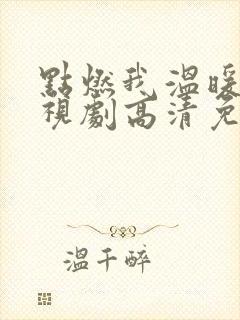 點燃我 溫暖
視劇高清免
溫千醉